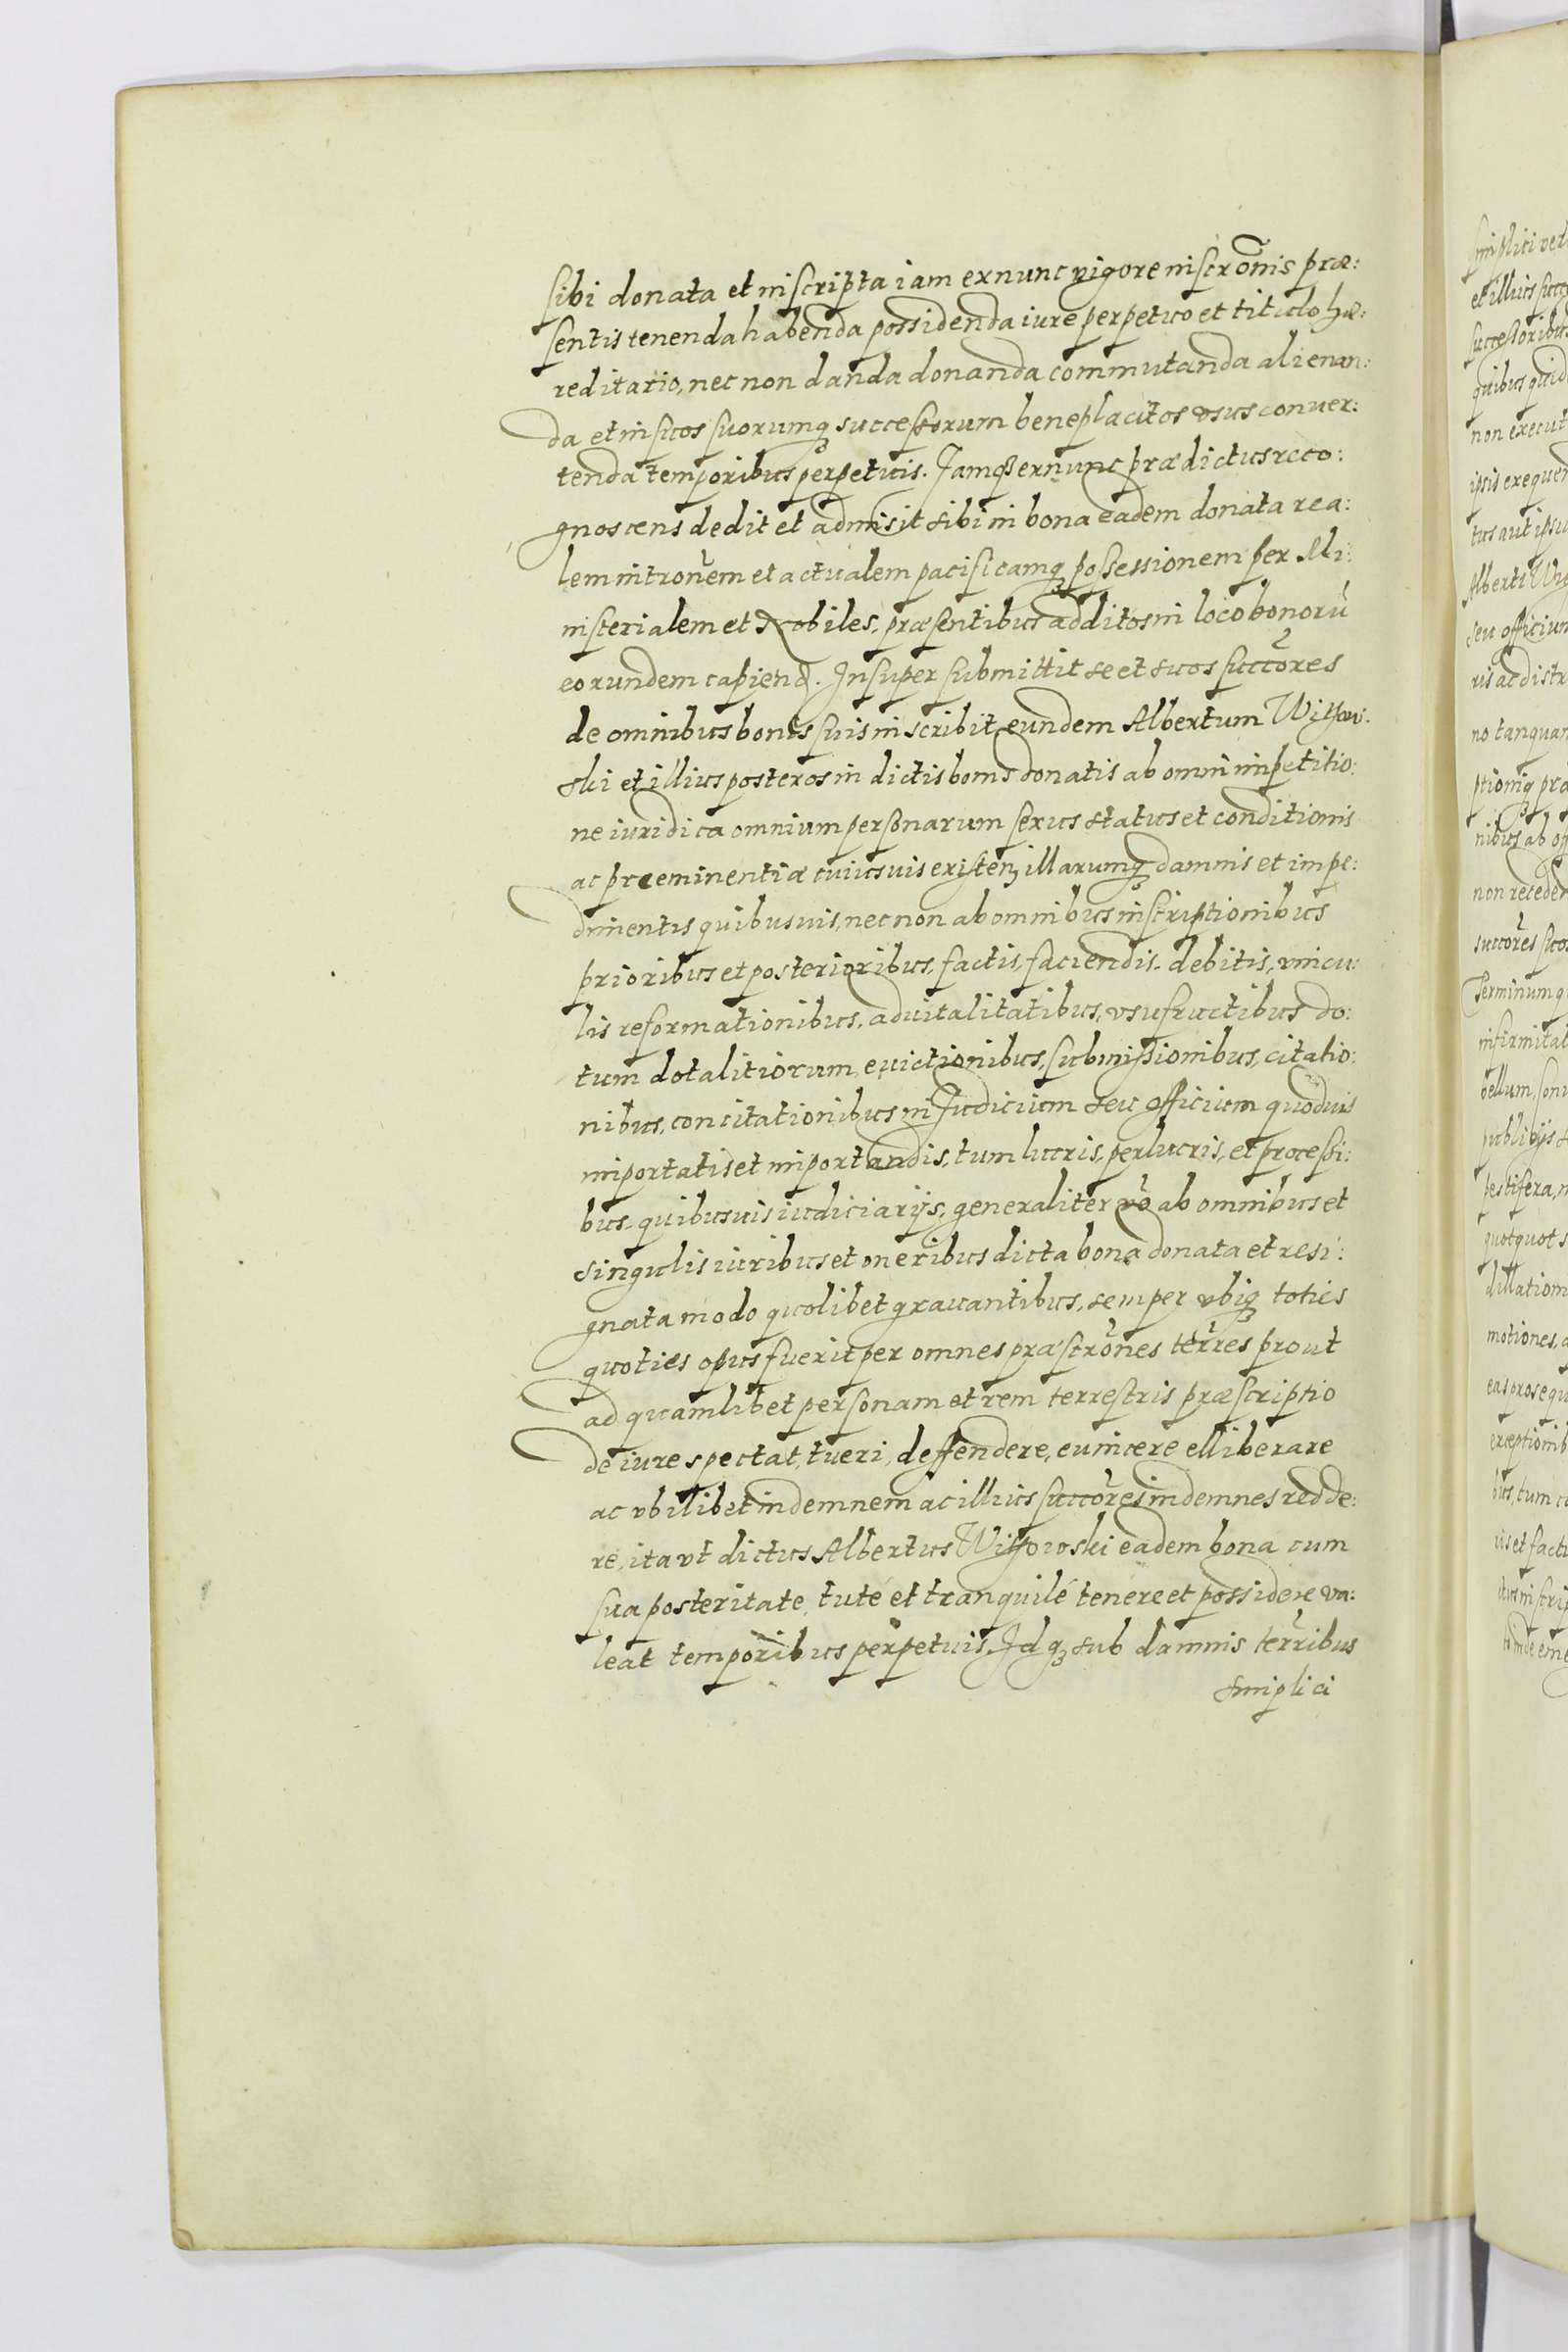 sibi donata et inscripta iam ex nunc vigore inscrōnis præ:
sentis tenenda habenda possidenda iure perpetuo et titulo hæ:
reditario, nec non danda donanda commutanda alienan:
da et in suos suorumq̃ successorum beneplacitos vsus conuer:
tenda temporibus perpetuis. Iamq̃ ex nunc prædictus reco:
gnoscens dedit et admisit sibi in bona eadem donata rea:
lem intrōnem et actualem pacificamq̃ possessionem per Mi:
nisterialem et Nobiles, præsentibus additos in loco bonorū
eorundem capiend. Insuper submittit se et suos succōres
de omnibus bonis suis inscribit eundem Albertum
ski et illius posteros in dictis bonis donatis ab omni impetitio:
ne iuridica omnium personarum sexus status et conditionis
ac præeminentiæ cuiusuis existen illarumq̃ damnis et impe:
dimentis quibusuis, nec non ab omnibus inscriptionibus
prioribus et posterioribus, factis, faciendis, debitis, vincu:
lis reformationibus, aduitalitatibus, vsufructibus do:
tum dotalitiorum, euictionibus, submissionibus, citatio:
nibus, concitationibus in Iudicium seu officium quoduis
importatis et importandis, tum lucris, perlucris, et processi:
bus, quibusuis iudiciarijs, generaliter vō ab omnibus et
singulis iuribus et oneribus dicta bona donata et resi:
gnata modo quolibet grauantibus, semper vbiq̃ toties
quoties opus fuerit per omnes præscrōnes terres prout
ad quamlibet personam et rem terrestris præscriptio
de iure spectat, tueri, deffendere, euincere elliberare
ac vbilibet indemnem ac illius succōres indemnes redde:
re, ita vt dictus Albertus eadem bona cum
sua posteritate tuté et tranquilé tenere et possidere va:
leat temporibus perpetuis, Idq̃ sub damnis terribus
simplici